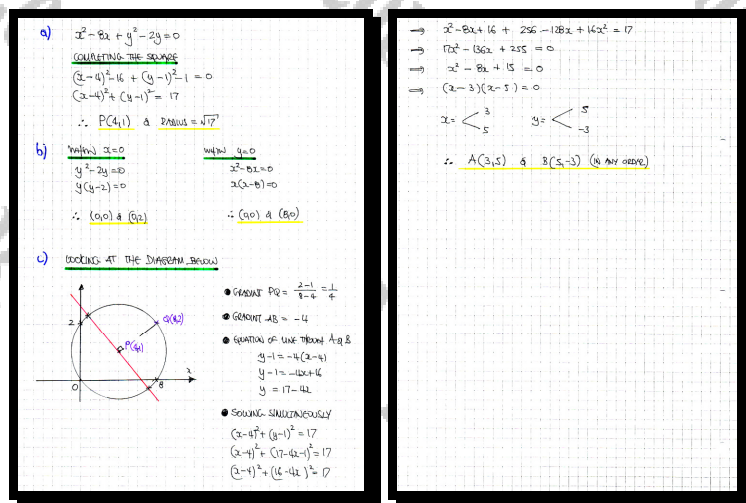 a) x² - 8x + y² - 2y = 0
COMPLETING THE SQUARE
(x-4)² - 16 + (y-1)² - 1 = 0
(x-4)² + (y-1)² = 17
∴ P(4,1) & RADIUS = √17
b) WHEN x=0
y² - 2y = 0
y(y-2) = 0
∴ (0,0) & (0,2)
WHEN y=0
x² - 8x = 0
x(x-8) = 0
∴ (0,0) & (8,0)
c) LOOKING AT THE DIAGRAM BELOW
2
Q(8,2)
P(4,1)
x
0
8
● GRADIENT PQ = 2-1/8-4 = 1/4
● GRADIENT AB = -4
● EQUATION OF LINE THROUGH A & B
y-1 = -4(x-4)
y-1 = -4x+16
y = 17-4x
● SOLVING SIMULTANEOUSLY
(x-4)² + (y-1)² = 17
(x-4)² + (17-4x-1)² = 17
(x-4)² + (16-4x)² = 17
⟹ x² - 8x + 16 + 256 - 128x + 16x² = 17
⟹ 17x² - 136x + 255 = 0
⟹ x² - 8x + 15 = 0
⟹ (x-3)(x-5) = 0
x = < 3 5 y = < 5 -3
∴ A(3,5) & B(5,-3) (IN ANY ORDER)